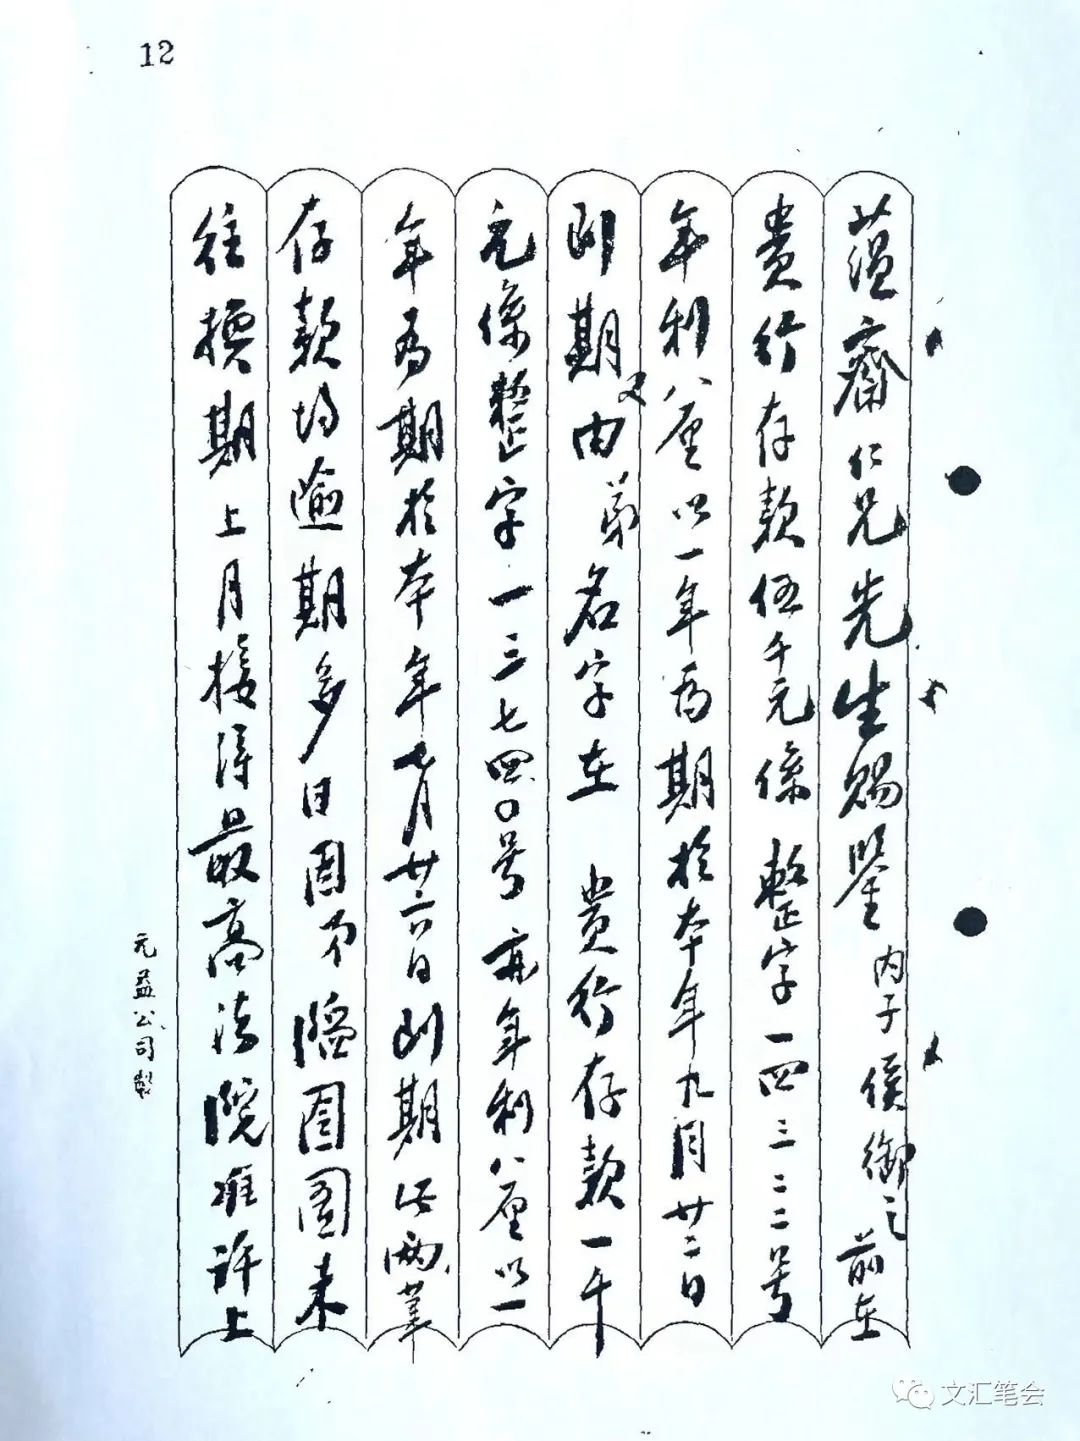 12
蕴斋仁兄先生赐鉴内子侯御之前在
贵行存款伍千元係整字一四三二二号
年利八厘以一年为期於本年九月廿二日
到期又由弟名字在 贵行存款一千
元係整字一三七四〇号亦年利八厘以一
年为期於本年七月廿六日到期此两笔
存款均逾期多日因弟 囹圄未
往换期上月接得最高法院准许上
元益公司製
文汇笔会